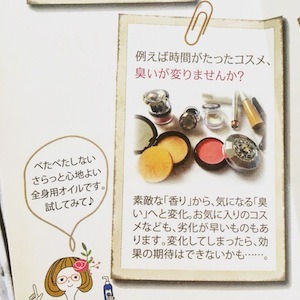 例えば時間がたったコスメ、
臭いが変りませんか?
べたべたしない
さらっと心地よい
全身用オイルです。
試してみて♪
素敵な「香り」から、気になる「臭
い」へと変化。お気に入りのコス
メなども、劣化が早いものもあ
ります。変化してしまったら、効
果の期待はできないかも……。